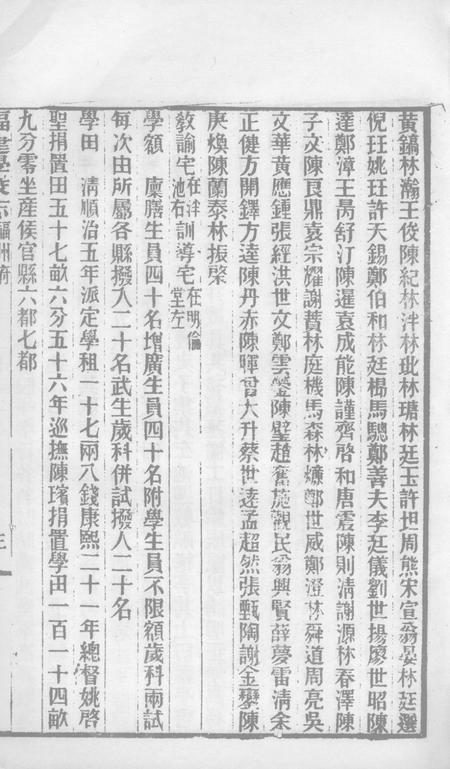 黃鎬林瀚王俊陳紀林泮林玭林璐林廷玉許坦周熊宋宣翁晏林廷選
倪珏姚珏許天錫鄭伯和林廷㭿馬驄鄭善夫李廷儀劉世揚廖世昭陳
達鄭漳王昺舒汀陳暹袁成能陳謹齊啓和唐震陳則清謝源林春澤陳
子文陳良鼎袁宗耀謝蕡林庭機馬森林爌鄭世威鄭澄林舜道周亮吳
文華黃應鍾張經洪世文鄭雲鎣陳璧趙奮施觀民翁興賢薛夢雷清余
正健方開鐸方逵陳丹赤陳暉曾大升蔡世逵孟超然張甄陶謝金鑾陳
庚煥陳蘭泰林振棨
教諭宅在泮池右訓導宅在明倫堂左
學額　廩膳生員四十名增廣生員四十名附學生員不限額歲科兩試
每次由所屬各縣撥入二十名武生歲科併試撥入二十名
學田　清順治五年派定學租一十七兩八錢康熙二十一年總督姚啓
聖捐置田五十七畝六分五十六年巡撫陳璸捐置學田一百一十四畝
九分零坐產侯官縣六都七都
福建學校志福州府